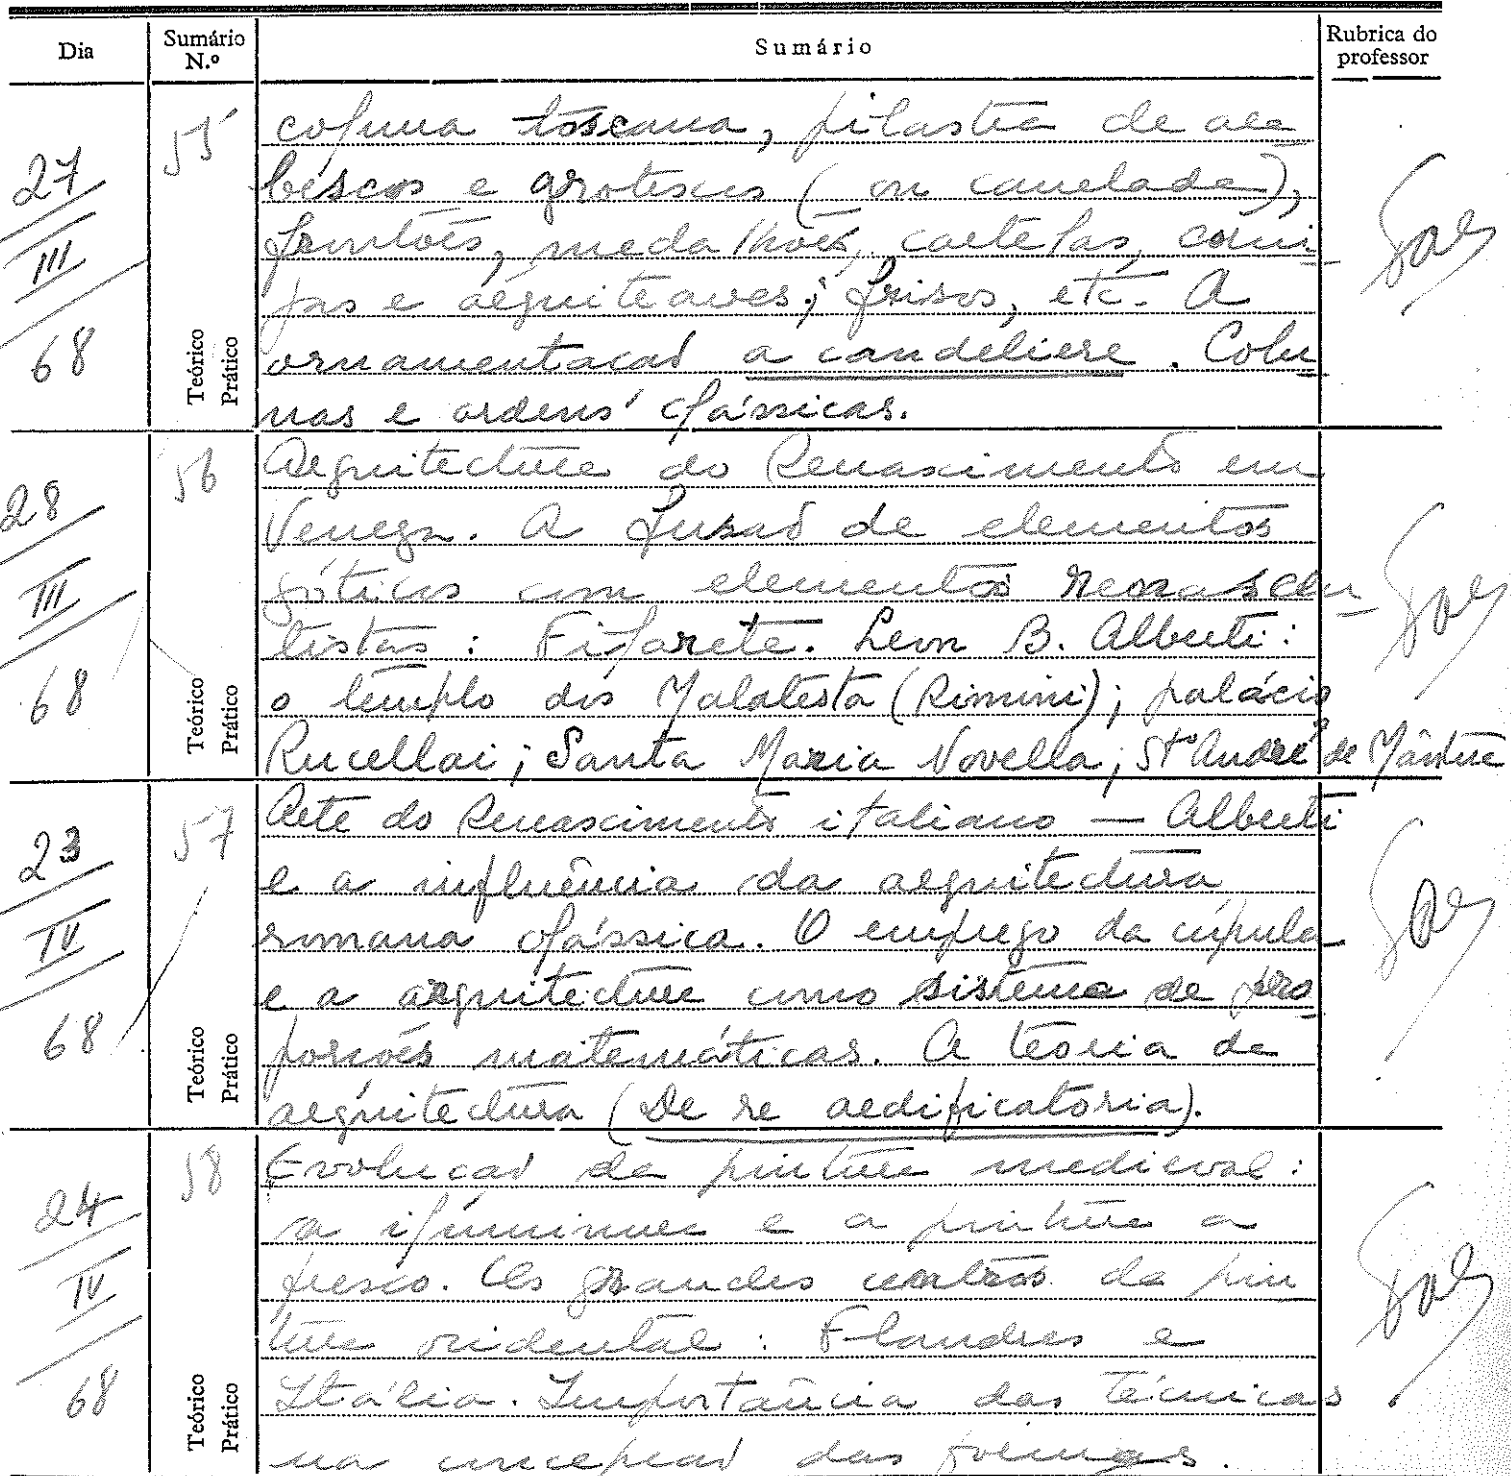 Dia
Sumário
N.º
Sumário
Rubrica do
professor
27
III
68
55
Teórico
Prático
coluna toscana, pilastra de ara
bescos e grotescos (ou canelada),
frontões, medalhões, cartelas, corni
jas e arquitraves; frisos, etc. A
ornamentação a candeliere. Colu
nas e ordens clássicas.
28
III
68
56
Teórico
Prático
Arquitectura do Renascimento em
Veneza. A fusão de elementos
góticos com elementos renascen
tistas: Filarete. Leon B. Alberti:
o templo dos Malatesta (Rimini); palácio
Rucellai; Santa Maria Novella; Stº André de Mântua
23
IV
68
57
Teórico
Prático
Arte do Renascimento italiano — Alberti
e a influência da arquitectura
romana clássica. O emprego da cúpula
e a arquitectura como sistema de pro
porções matemáticas. A teoria da
arquitectura (De re aedificatoria).
24
IV
68
58
Teórico
Prático
Evolução da pintura medieval:
a iluminura e a pintura a
fresco. Os grandes centros da pin
tura ocidental: Flandres e
Itália. Importância das técnicas
na concepção das formas.